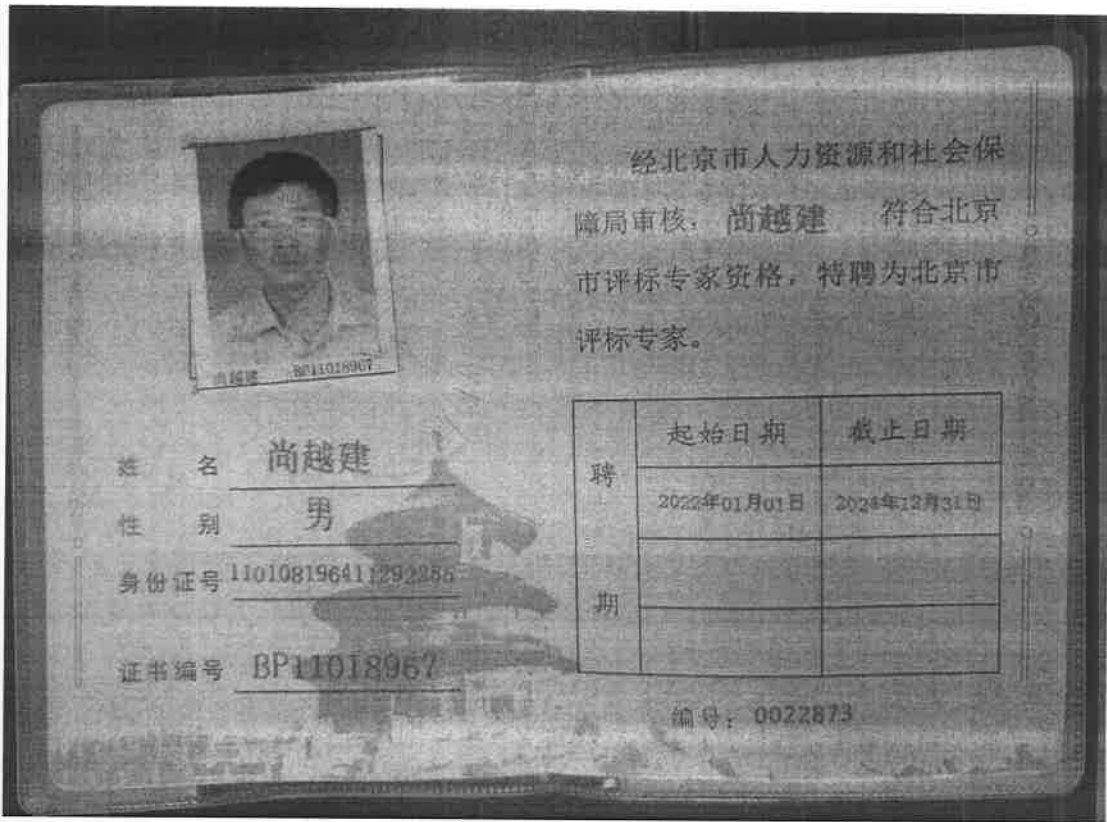 尚越建 BP11018967
姓 名 尚越建
性 别 男
身份证号
证书编号 BP11018967
经北京市人力资源和社会保
障局审核，尚越建 符合北京
市评标专家资格，特聘为北京市
评标专家。
聘期
起始日期 截止日期
2022年01月01日 2024年12月31日
编号：0022873